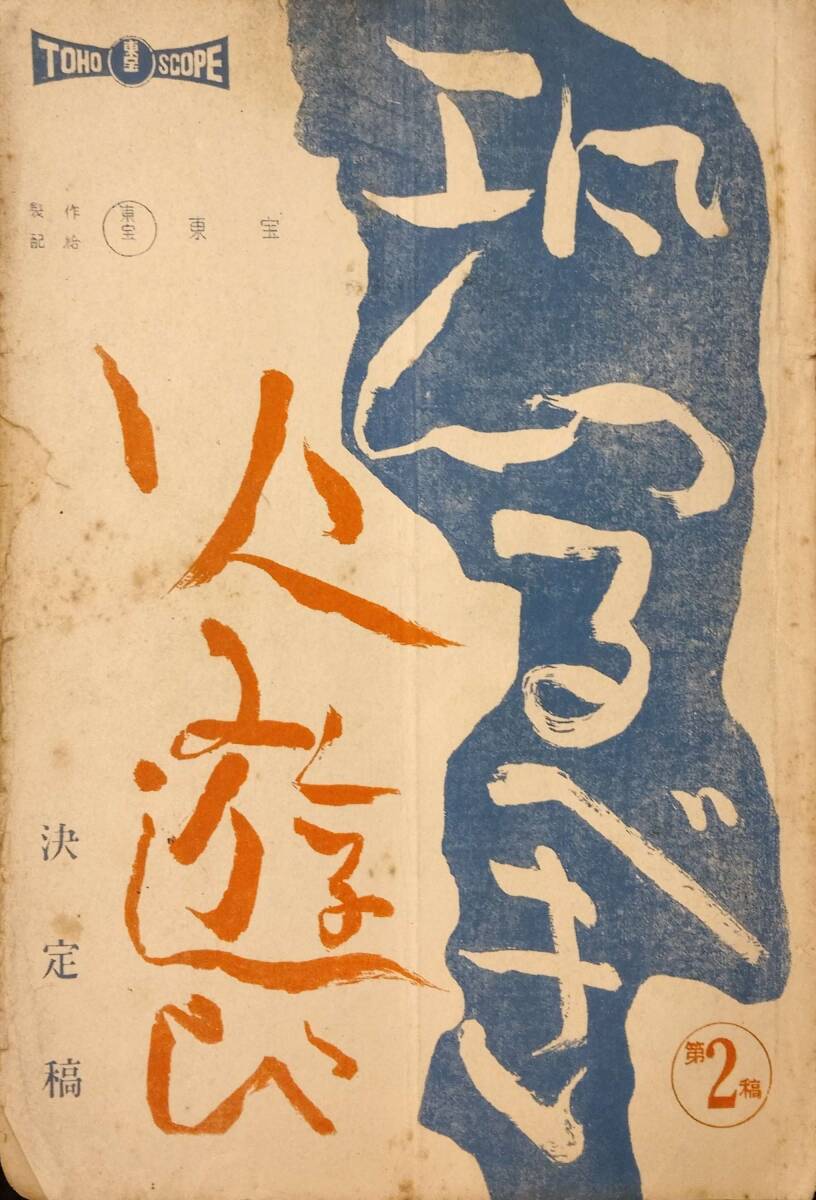 TOHO 東宝 SCOPE
製作
配給
東宝
東宝
恐るべき
火遊び
決定稿
第2稿